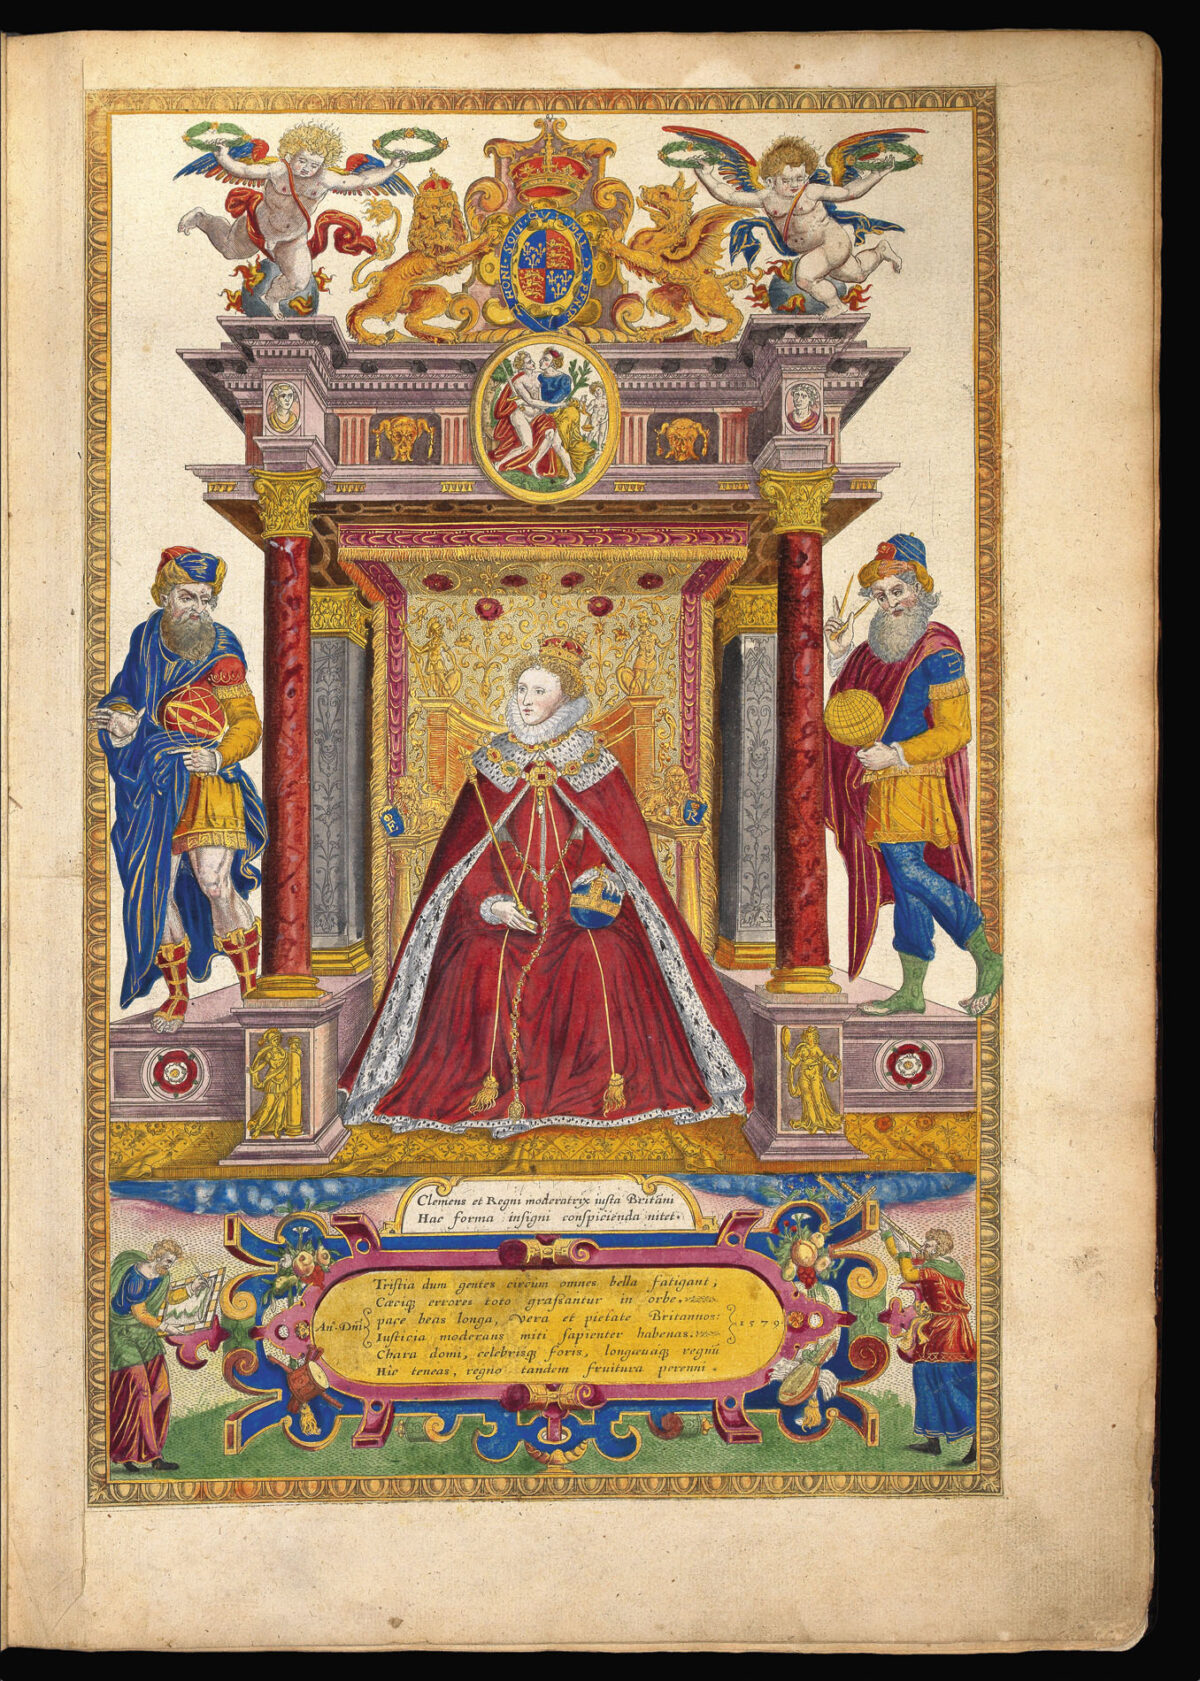 HONI · SOIT · QVI · MAL · Y · PENSE
E
R
Clemens et Regni moderatrix iusta Britāni
Hac forma insigni conspicienda nitet.
Tristia dum gentes circūm omnes bella fatigant,
Cæciq; errores toto grassantur in orbe.
pace beas longa, vera et pietate Britannos:
Iusticia moderans miti sapienter habenas.
Chara domi, celebrisq; foris, longævaq; regnū
Hîc teneas, regno tandem fruitura perenni.
An͞o D͞ni
1579